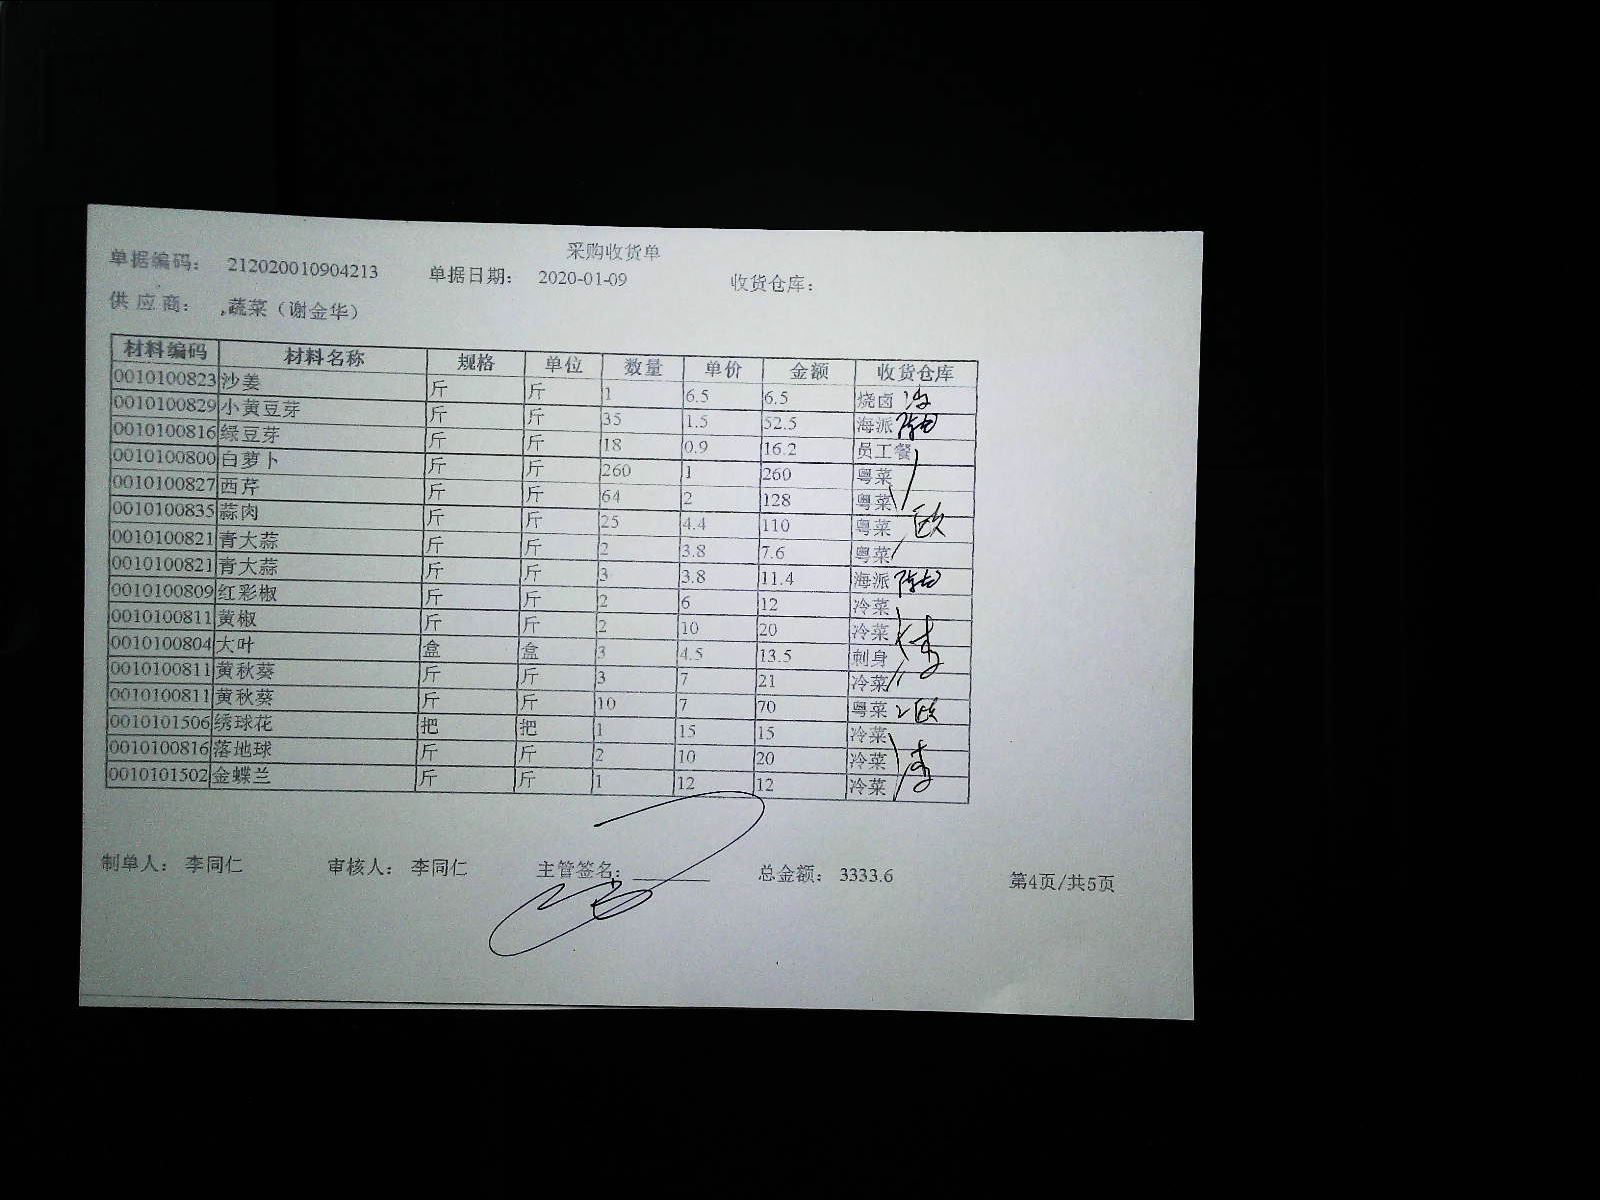 采购收货单
单据编码： 212020010904213 单据日期： 2020-01-09 收货仓库：
供 应 商： ,蔬菜（谢金华）
材料编码 材料名称 规格 单位 数量 单价 金额 收货仓库
0010100823 沙姜 斤 斤 1 6.5 6.5 烧卤
0010100829 小黄豆芽 斤 斤 35 1.5 52.5 海派
0010100816 绿豆芽 斤 斤 18 0.9 16.2 员工餐
0010100800 白萝卜 斤 斤 260 1 260 粤菜
0010100827 西芹 斤 斤 64 2 128 粤菜
0010100835 蒜肉 斤 斤 25 4.4 110 粤菜 欧
0010100821 青大蒜 斤 斤 2 3.8 7.6 粤菜
0010100821 青大蒜 斤 斤 3 3.8 11.4 海派
0010100809 红彩椒 斤 斤 2 6 12 冷菜
0010100811 黄椒 斤 斤 2 10 20 冷菜 李
0010100804 大叶 盒 盒 3 4.5 13.5 刺身
0010100811 黄秋葵 斤 斤 3 7 21 冷菜
0010100811 黄秋葵 斤 斤 10 7 70 粤菜 欧
0010101506 绣球花 把 把 1 15 15 冷菜
0010100816 落地球 斤 斤 2 10 20 冷菜 李
0010101502 金蝶兰 斤 斤 1 12 12 冷菜
制单人： 李同仁 审核人： 李同仁 主管签名： 总金额： 3333.6 第4页/共5页